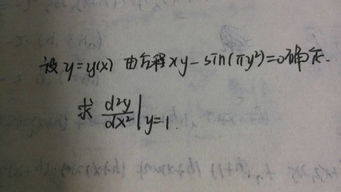 设 y=y(x) 由方程 xy-sin(πy²)=0确定.
求 d²y/dx²|y=1.